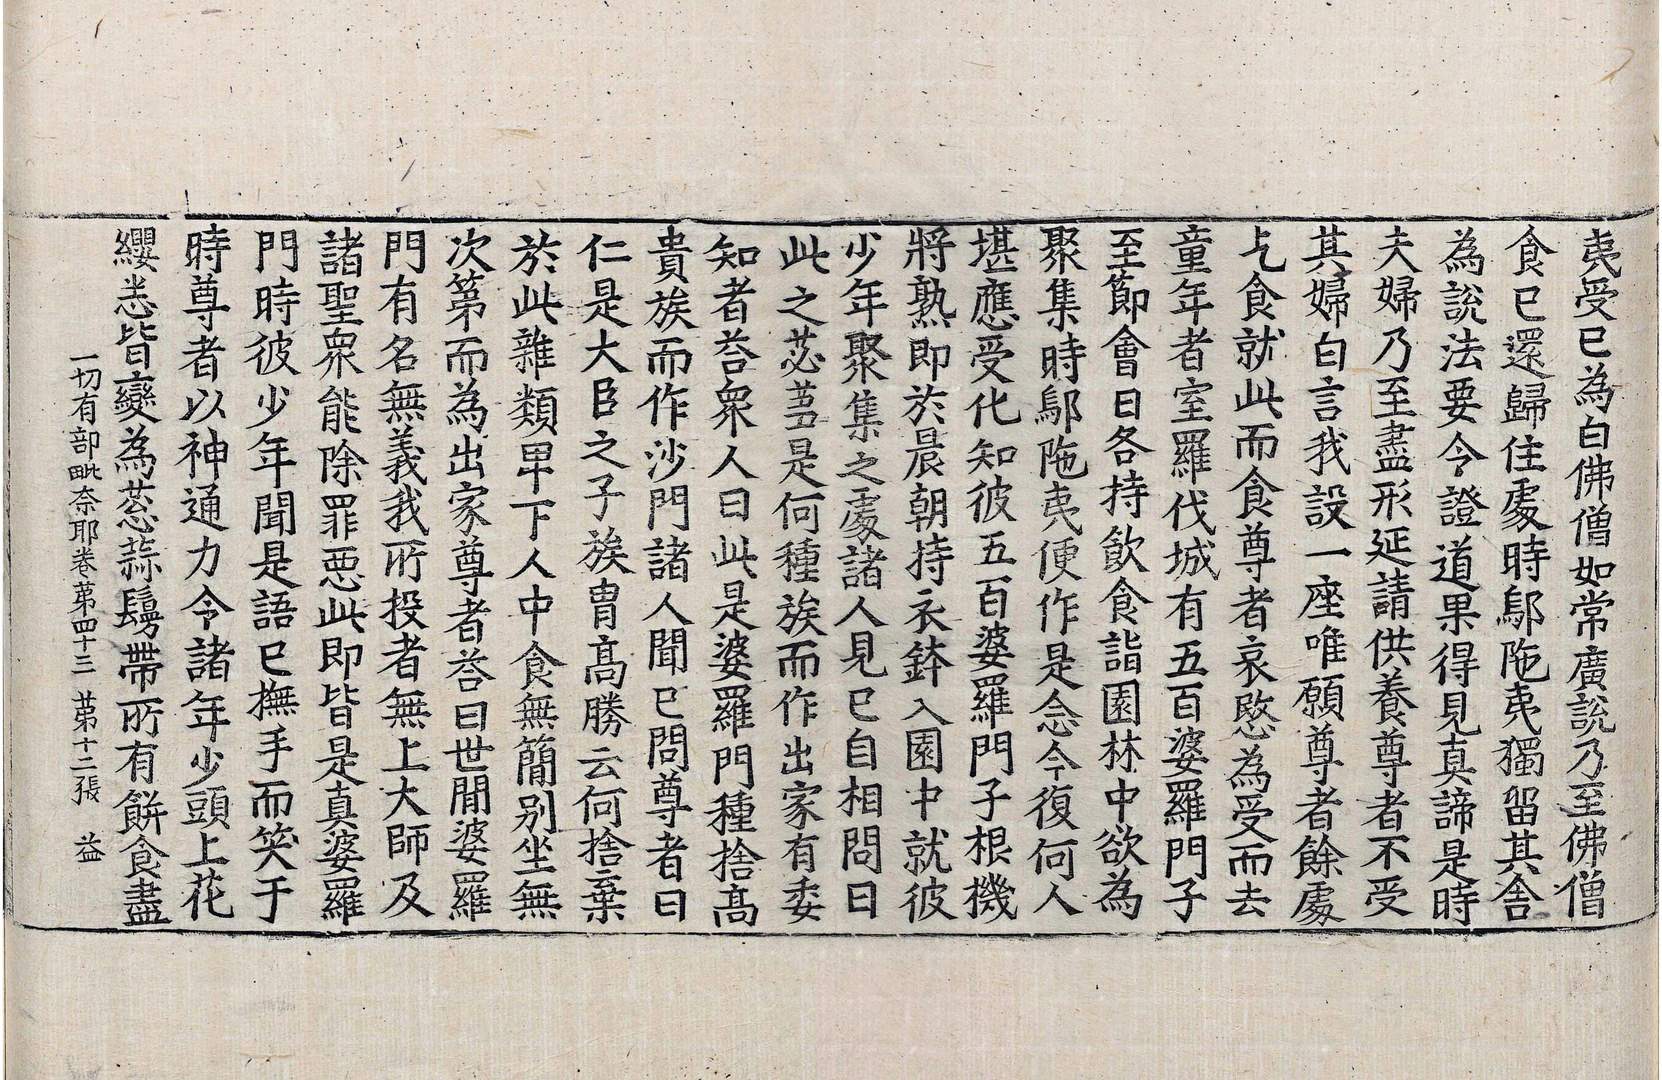 夷受已為白佛僧如常廣說乃至佛僧
食已還歸住處時鄔陁夷獨留其舍
為說法要令證道果得見真諦是時
夫婦乃至盡形延請供養尊者不受
其婦白言我設一座唯願尊者餘處
乞食就此而食尊者哀愍為受而去
童年者室羅伐城有五百婆羅門子
至節會日各持飲食詣園林中欲為
聚集時鄔陁夷便作是念今復何人
堪應受化知彼五百婆羅門子根機
將熟即於晨朝持衣鉢入園中就彼
少年聚集之處諸人見已自相問曰
此之苾芻是何種族而作出家有委
知者荅衆人曰此是婆羅門種捨高
貴族而作沙門諸人聞已問尊者曰
仁是大臣之子族胄高勝云何捨棄
於此雜類卑下人中食無簡別坐無
次第而為出家尊者荅曰世閒婆羅
門有名無義我所投者無上大師及
諸聖衆能除罪惡此即皆是真婆羅
門時彼少年聞是語已撫手而笑于
時尊者以神通力令諸年少頭上花
纓悉皆變為葱蒜鬘帶所有餅食盡
一切有部毗奈耶卷第四十三 第十二張 益